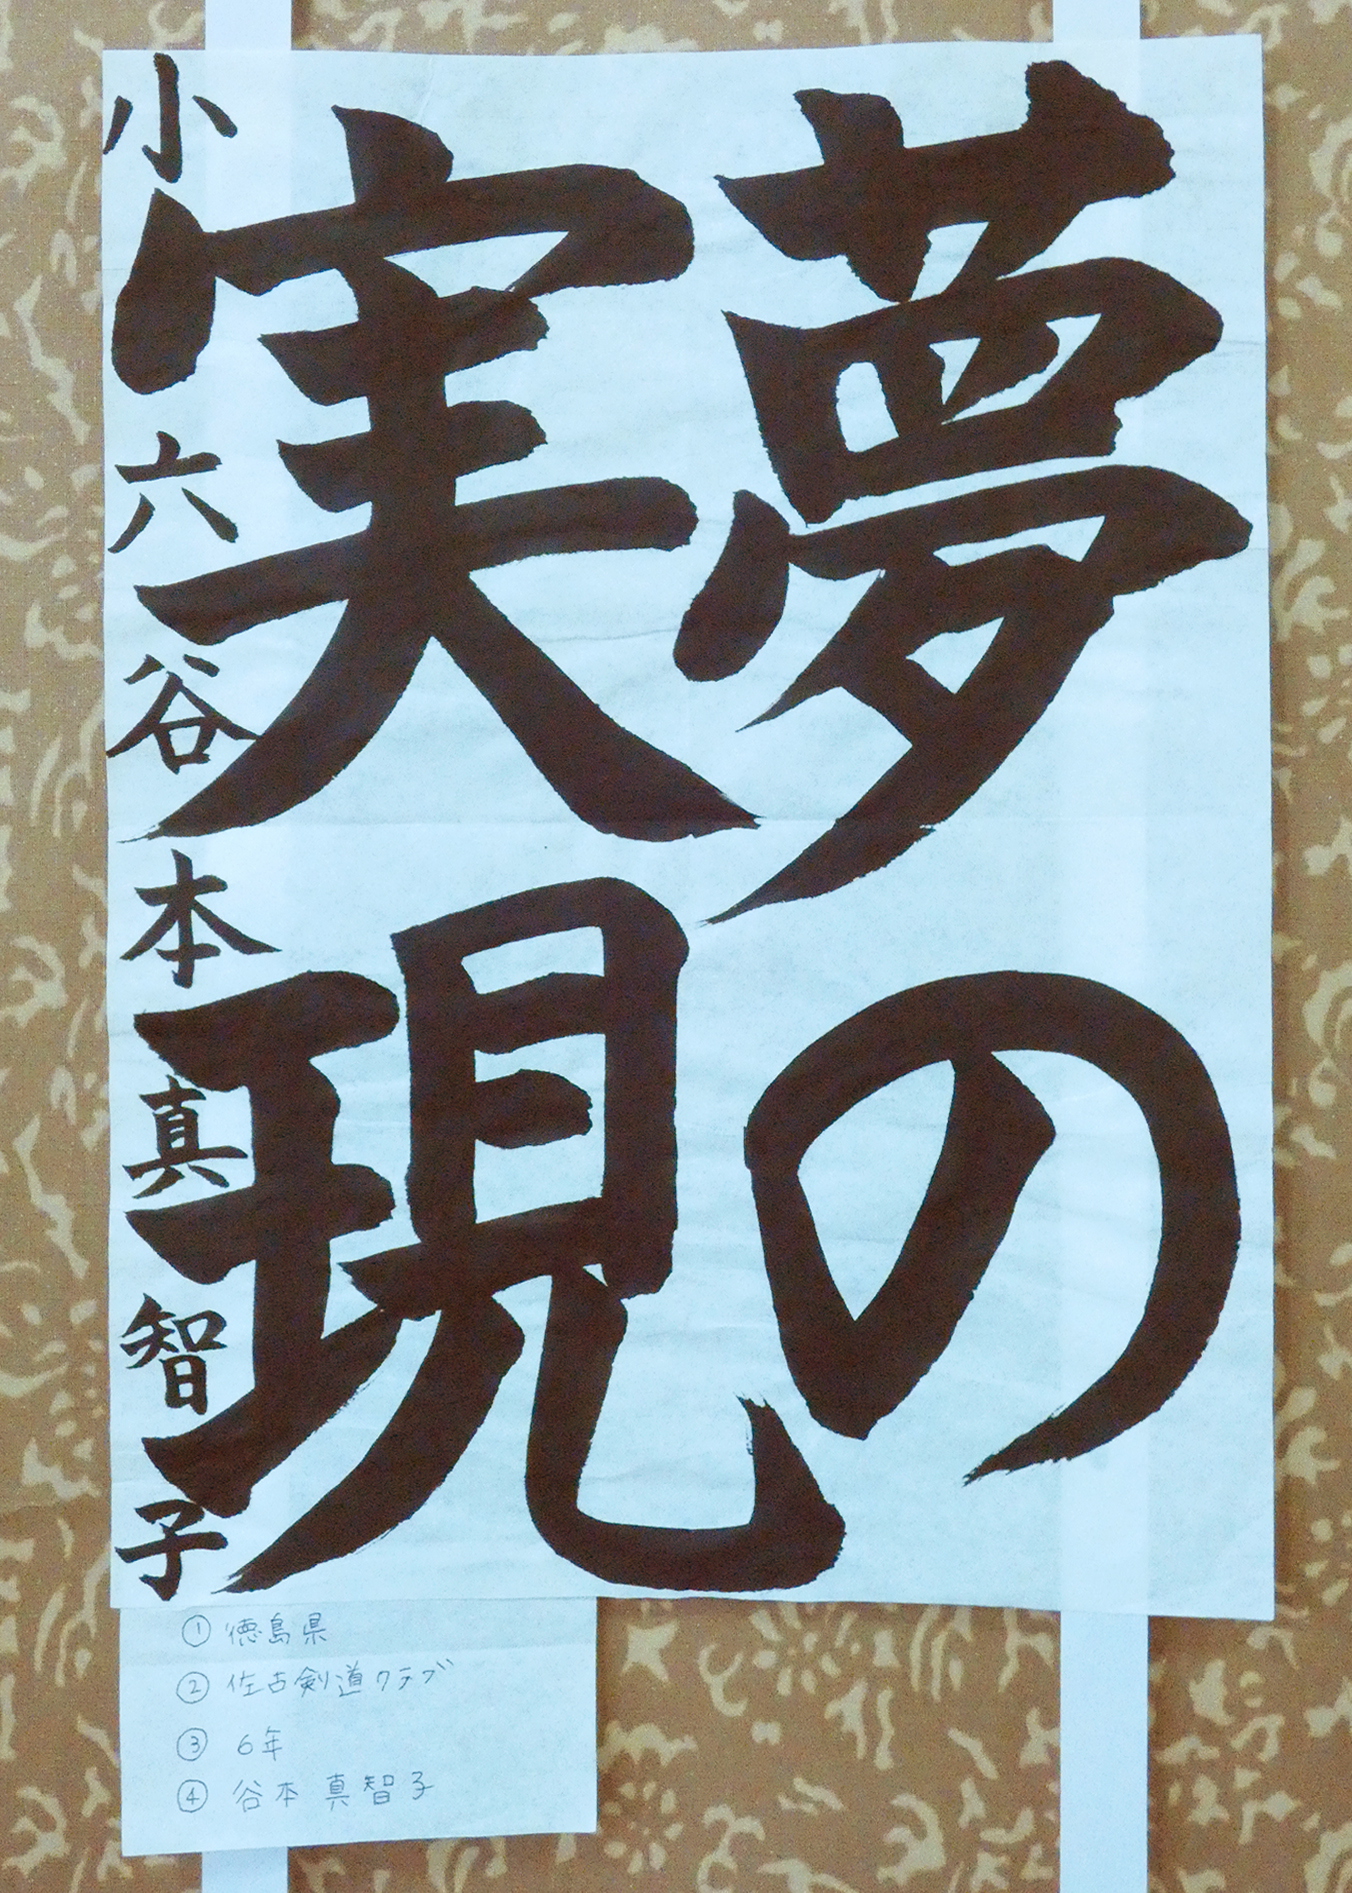 夢の
実現
小六 谷本真智子
① 徳島県
② 佐古剣道クラブ
③ 6年
④ 谷本 真智子